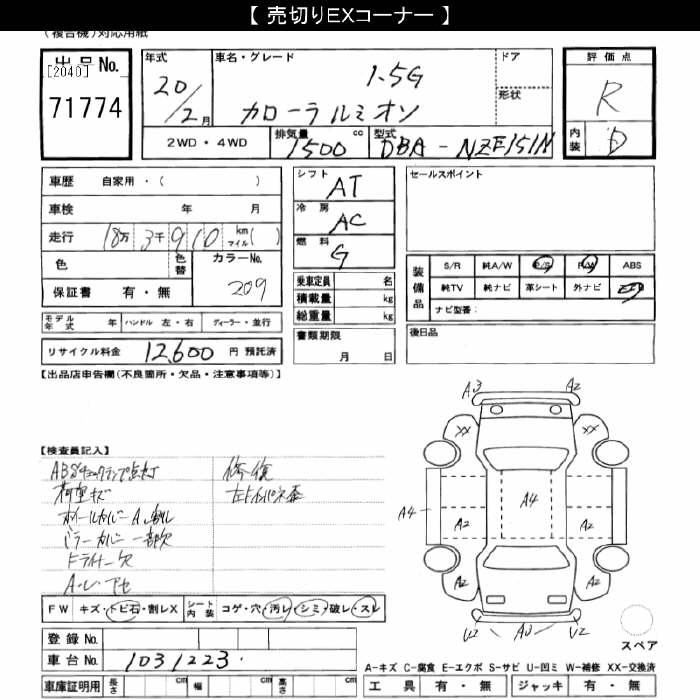 【 売切りEXコーナー 】
(複合機)対応用紙
出品No.
[2040]
71774
年式
20/2月
車名・グレード
1.5G
カローラルミオン
ドア
形状
評価点
R
内装
D
2WD・4WD
排気量
1500 cc
型式
DBA-NZE151N
車歴 自家用・( )
車検 年 月
走行 18万 3千 9 1 0 km マイル( )
色
色替
カラーNo.
209
保証書 有・無
モデル年式 年
ハンドル 左・右
ディーラー・並行
リサイクル料金 12,600 円 預託済
シフト
AT
冷房
AC
燃料
G
乗車定員 名
積載量 kg
総重量 kg
書類期限
月 日
セールスポイント
装備品
S/R 純A/W P/S P/W ABS
純TV 純ナビ 革シート 外ナビ エアB
ナビ型番:
後日品
【出品店申告欄(不良箇所・欠品・注意事項等)】
【検査員記入】
ABSチェックランプ点灯
荷室キズ
ホイールカバーA、割れ
ミラーカバー一部欠
ドライナー欠
修・復
A3 A2
XX XX
A4 A4
A2 A2
A2 A2
U2 A3 U2
スペア
FW キズ・トビ石・割レX
シート内装 コゲ・穴・汚レ・シミ・破レ・スレ
登録No.
車台No. 1031223
車庫証明用 長さ cm 幅 cm 高さ cm
A-キズ C-腐食 E-エクボ S-サビ U-凹ミ W-補修 XX-交換済
工具 有・無 ジャッキ 有・無